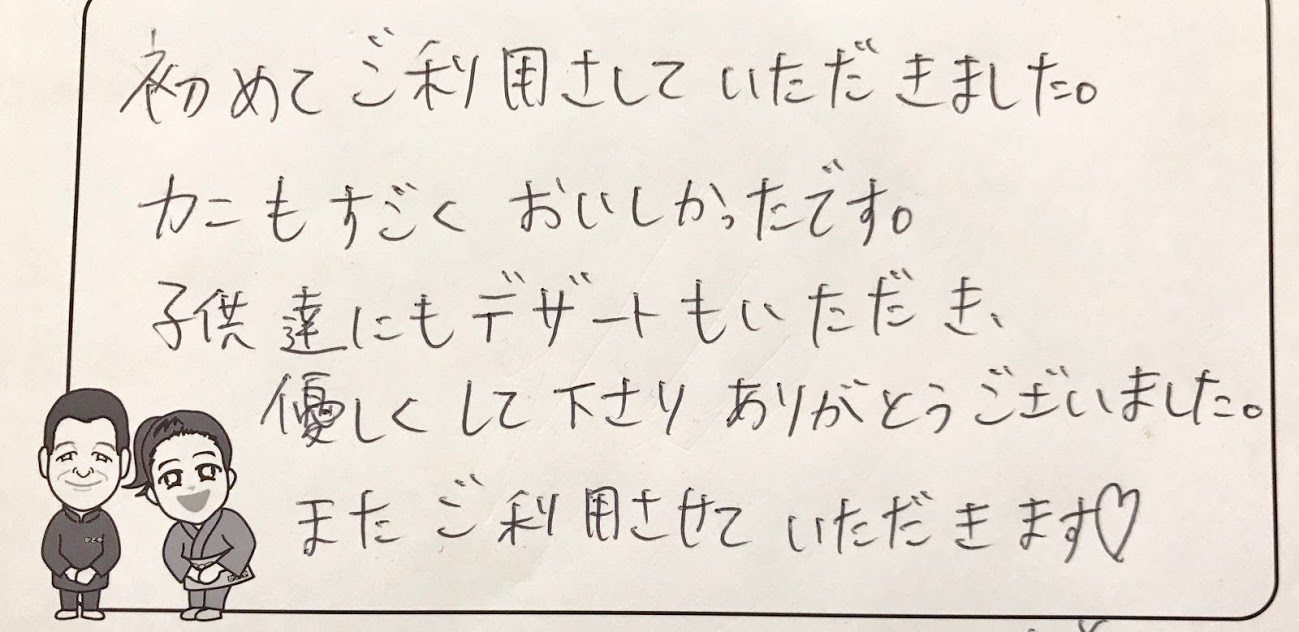 初めてご利用さしていただきました。
カニもすごくおいしかったです。
子供達にもデザートもいただき、
優しくして下さりありがとうございました。
またご利用させていただきます♡